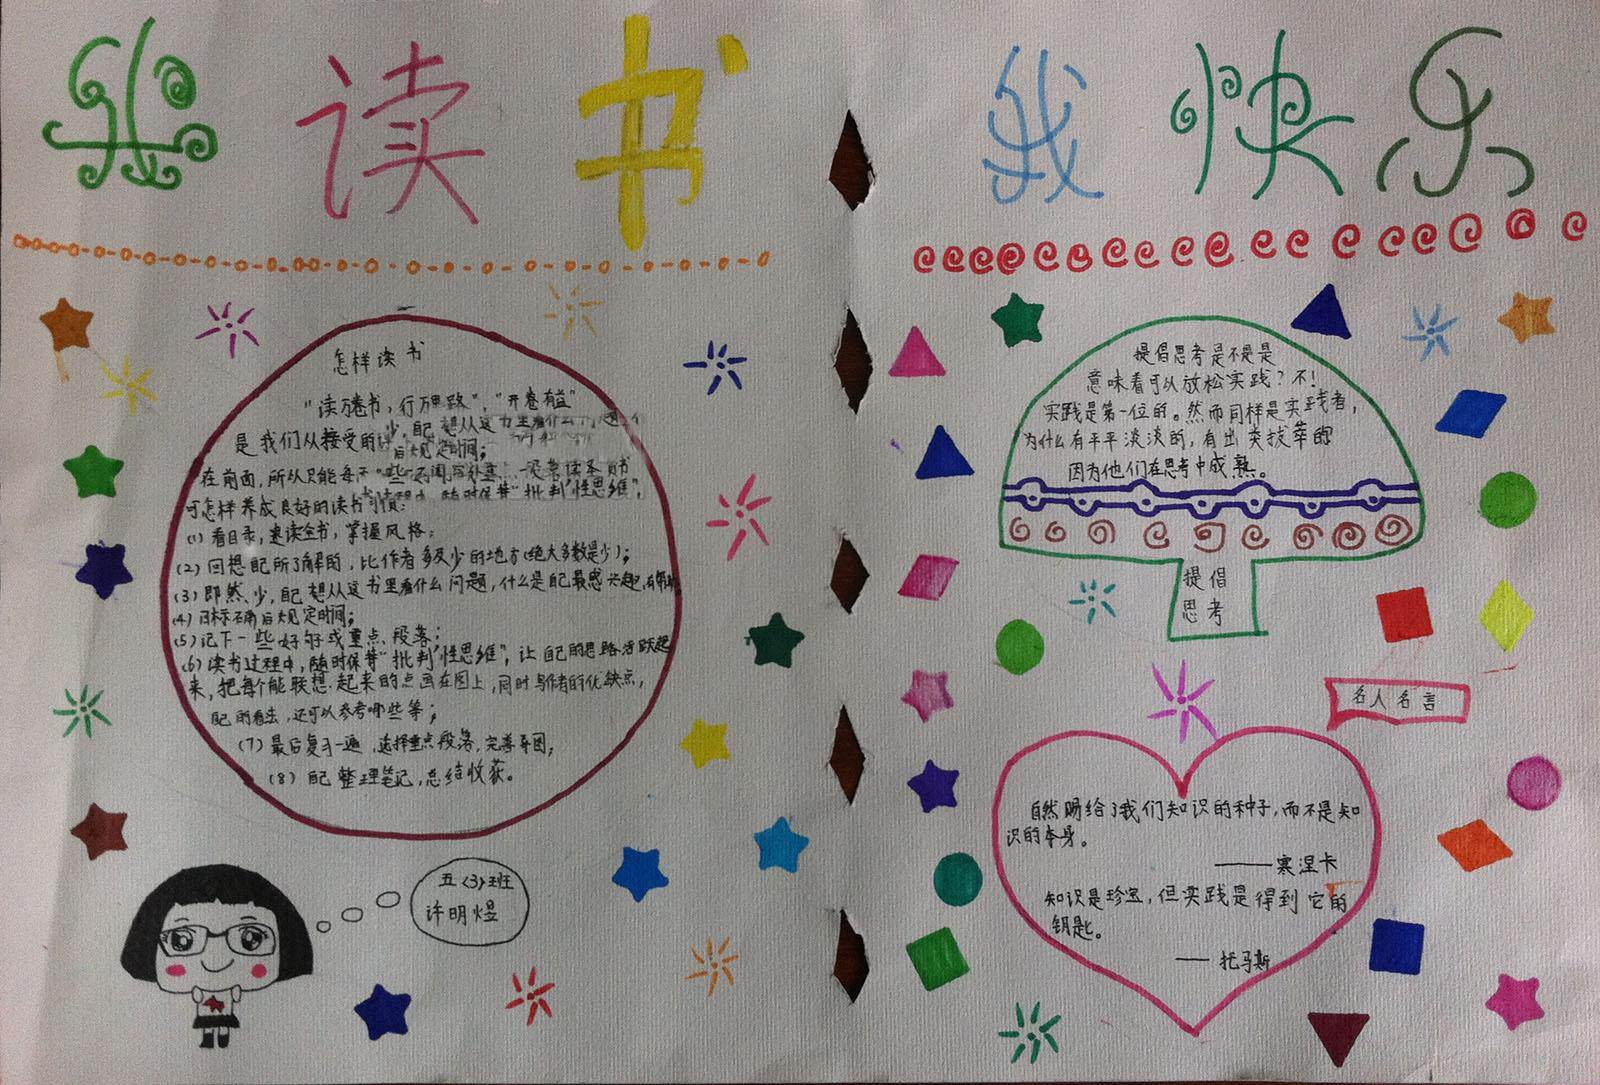 我读书
我快乐
怎样读书
"读万卷书，行万里路"，"开卷有益"
是我们从接受的
在前面，所以只能每
可怎样养成良好的读书习惯：
(1) 看目录，速读全书，掌握风格；
(2) 回想自己所了解的，比作者多及少的地方(绝大多数是少)；
(3) 即然少，自己想从这书里看什么问题，什么是自己最感兴趣，有帮助
(4) 目标明确后大规定时间；
(5) 记下一些好句或重点、段落；
(6) 读书过程中，随时保持"批判"性思维"，让自己的思路活跃起
来，把每个能联想起来的点画在图上，同时与作者的优缺点，
自己的看法，还可以参考哪些等；
(7) 最后复习一遍，选择重点段落，完善导图；
(8) 自己整理笔记，总结收获。
五(3)班
许明煜
提倡思考是不是是
意味着可以放松实践？不！
实践是第一位的。然而同样是实践者，
为什么有平平淡淡的，有出类拔萃的
因为他们在思考中成熟。
提倡
思考
名人名言
自然赐给了我们知识的种子，而不是知
识的本身。
——塞涅卡
知识是珍宝，但实践是得到它的
钥匙。
——托马斯